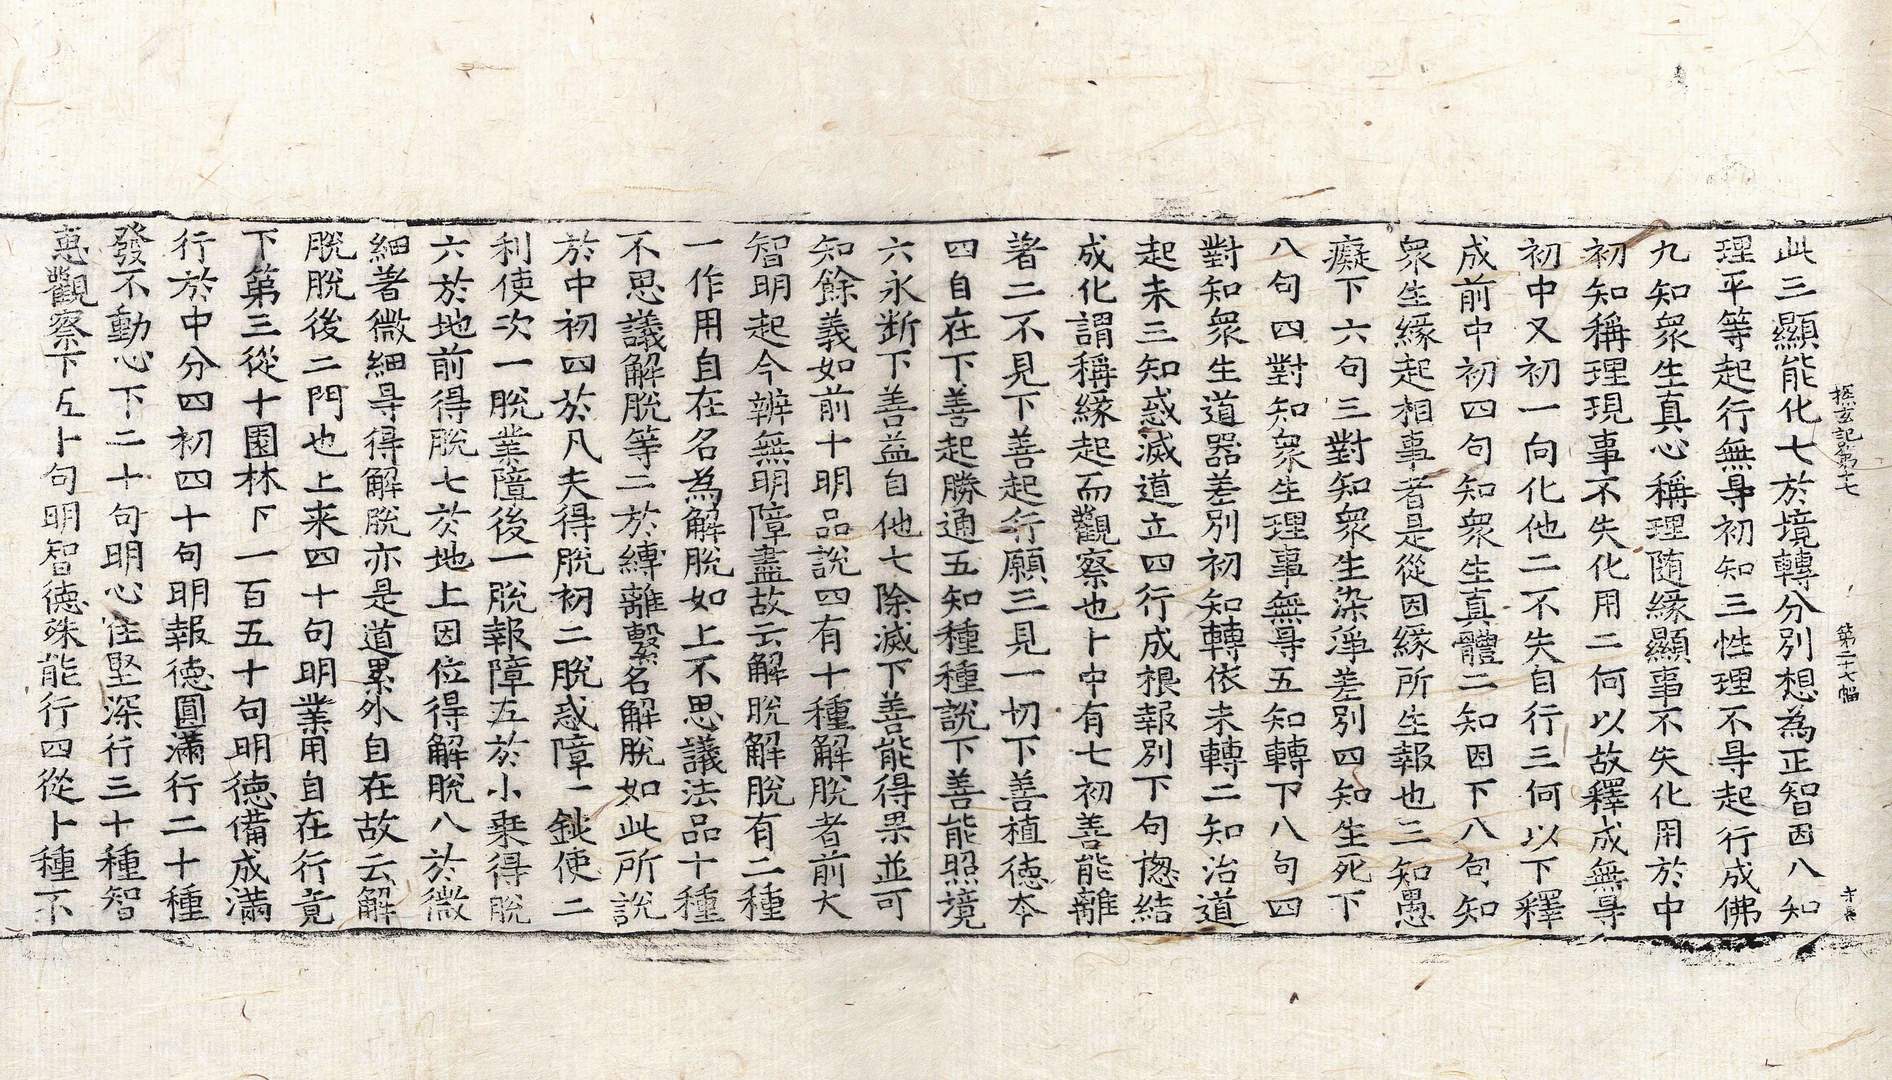 探玄記第十七 第二十七幅
此三顯能化七於境轉分別想為正智因八知
理平等起行無㝵初知三性理不㝵起行成佛
九知衆生真心稱理随緣顯事不失化用於中
初知稱理現事不失化用二何以故釋成無㝵
初中又初一向化他二不失自行三何以下釋
成前中初四句知衆生真體二知因下八句知
衆生緣起相事者是從因緣所生報也三知愚
癡下六句三對知衆生染淨差別四知生死下
八句四對知衆生理事無㝵五知轉下八句四
對知衆生道器差別初知轉依未轉二知治道
起未三知惑滅道立四行成根報別下句㧾結
成化謂稱緣起而觀察也卜中有七初善能離
著二不見下善起行願三見一切下善植德夲
四自在下善起勝通五知種種說下善能照境
六永断下善益自他七除滅下善能得果並可
知餘義如前十明品說四有十種解脫者前大
智明起今辨無明障盡故云解脫解脫有二種
一作用自在名為解脫如上不思議法品十種
不思議解脫等二於縛離繫名解脫如此所說
於中初四於凡夫得脫初二脫惑障一鈍使二
利使次一脫業障後一脫報障五於小乗得脫
六於地前得脫七於地上因位得解脫八於微
細著微細㝵得解脫亦是道累外自在故云解
脫脫後二門也上来四十句明業用自在行竟
下第三從十園林下一百五十句明德備成滿
行於中分四初四十句明報德圓滿行二十種
發不動心下二十句明心住堅深行三十種智
恵觀察下五十句明智德殊能行四從十種不